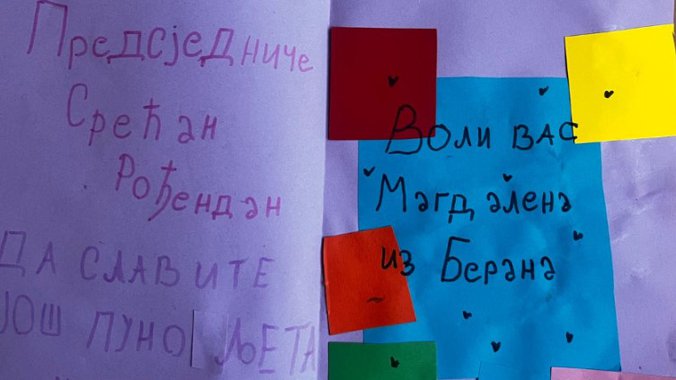 Предсједниче
Срећан
Рођендан
ДА СЛАВИТЕ
ЈОШ ПУНО ЉЕТА
Воли вас
Магдалена
из Берана